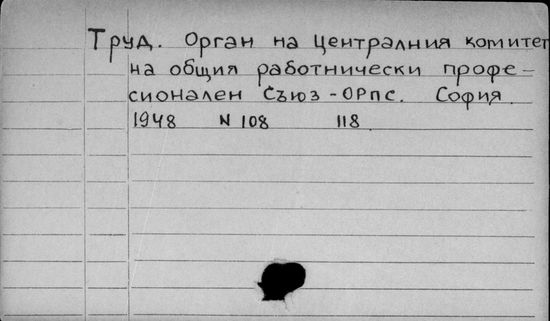 Труд. Орган на Централния комитет
на общия работнически профе-
сионален Съюз - ОРПС. София.
1948 N 108 118